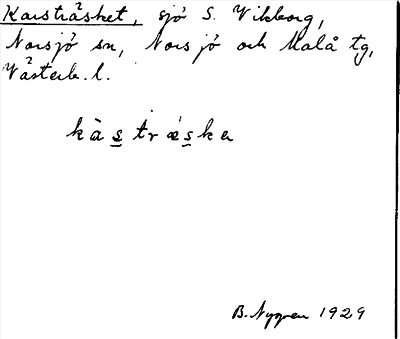 Karsträsket, sjö S. Vikborg,
Norsjö sn, Norsjö och Malå tg,
Västerb. l.
kàstrǽska
B. Nygren 1929